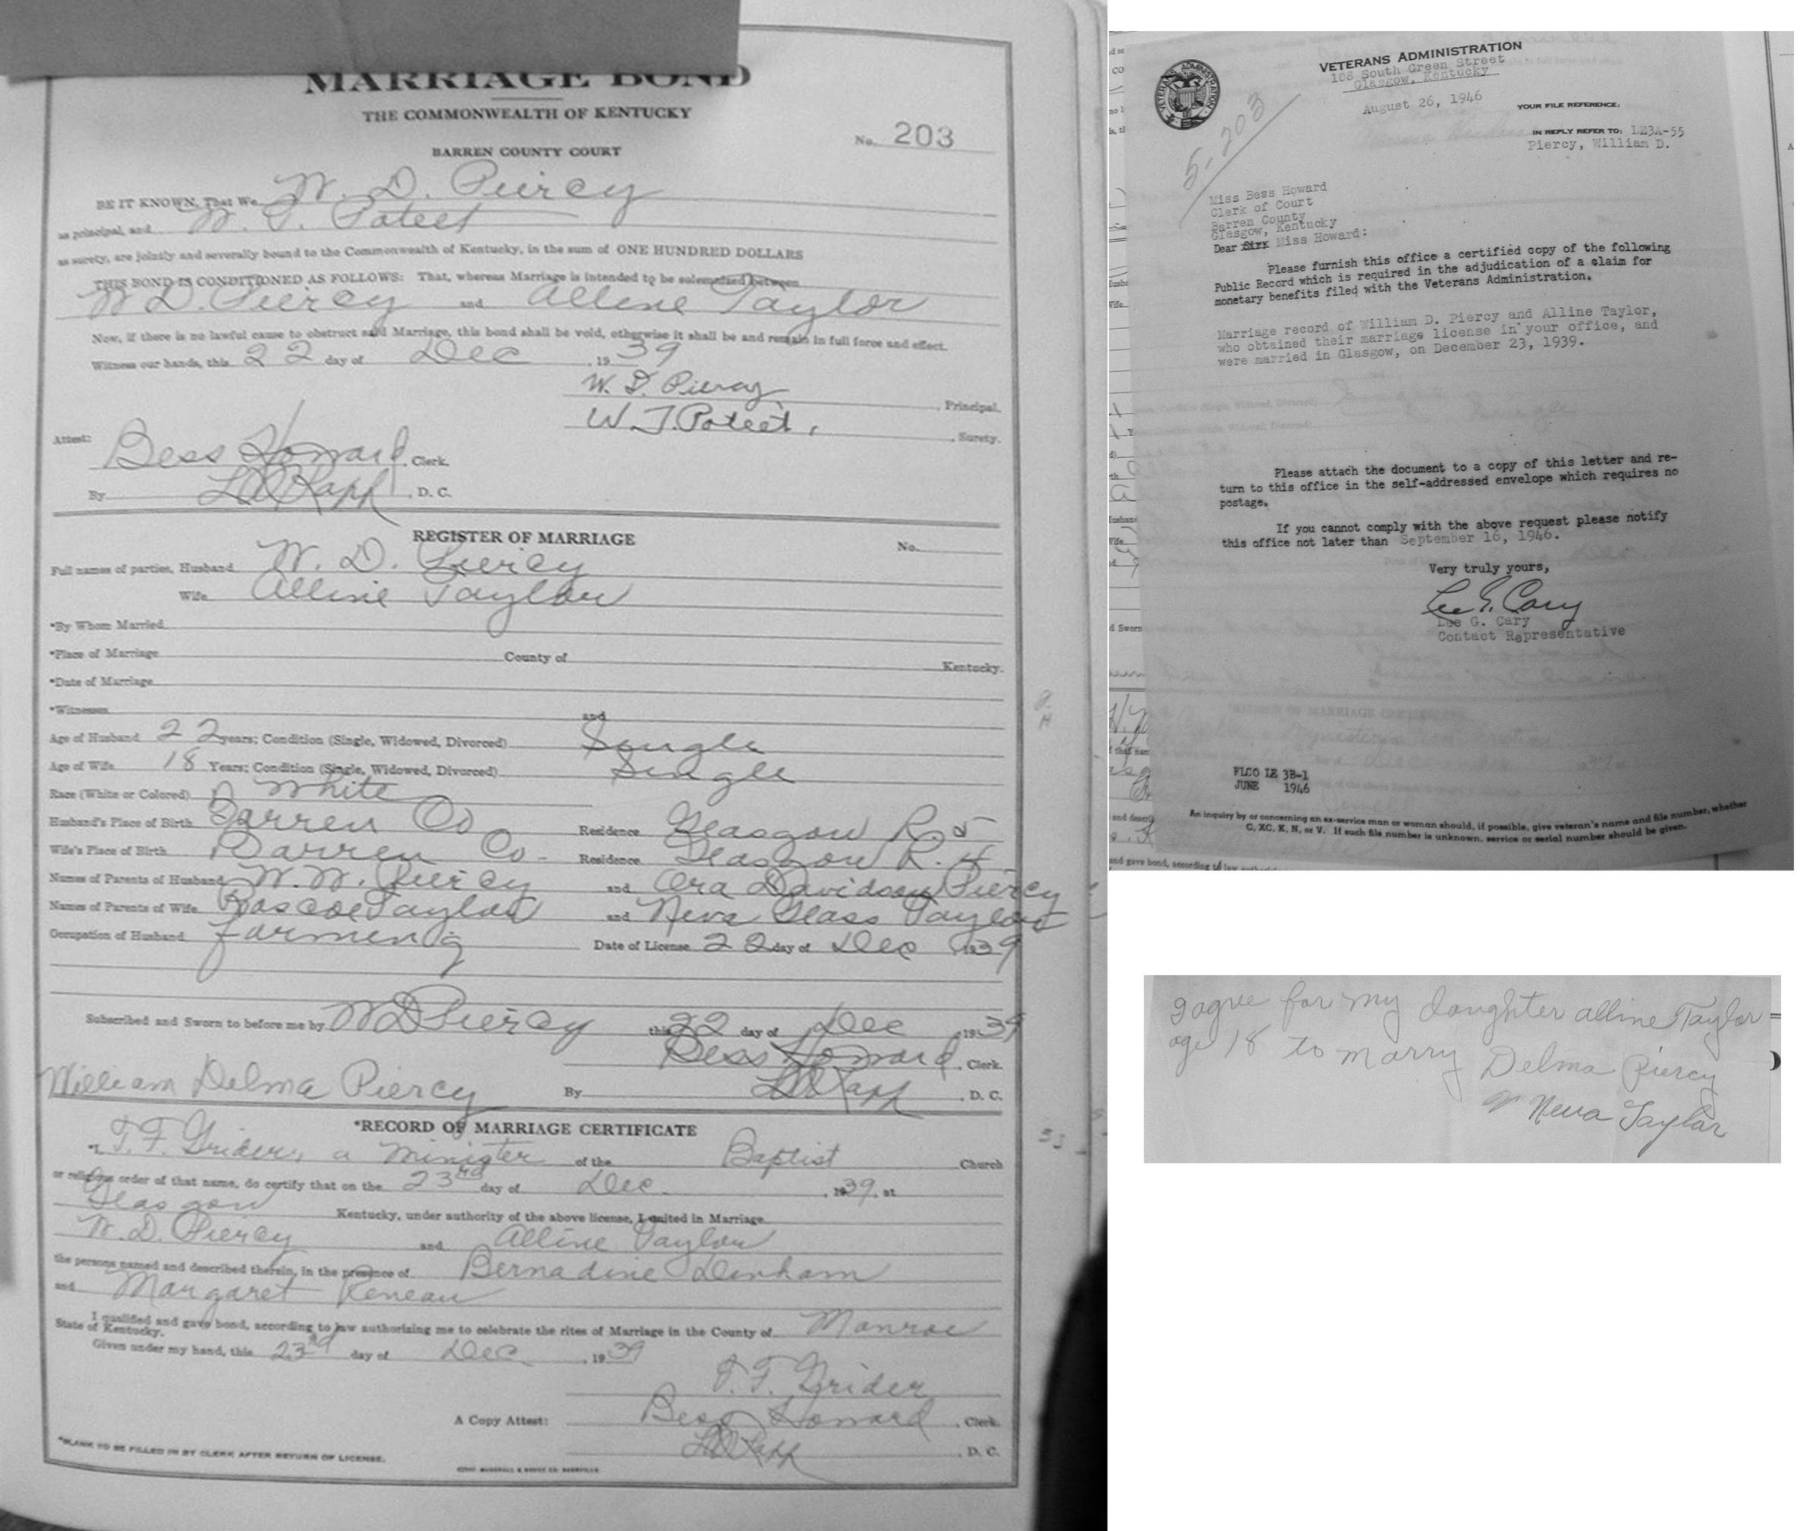 MARRIAGE BOND
THE COMMONWEALTH OF KENTUCKY
No. 203
BARREN COUNTY COURT
BE IT KNOWN, That We W. D. Piercy
as principal, and W. T. Poteet
as surety, are jointly and severally bound to the Commonwealth of Kentucky, in the sum of ONE HUNDRED DOLLARS
THIS BOND IS CONDITIONED AS FOLLOWS: That, whereas Marriage is intended to be solemnized between
W. D. Piercy and Alline Taylor
Now, if there is no lawful cause to obstruct said Marriage, this bond shall be void, otherwise it shall be and remain in full force and effect.
Witness our hands, this 22 day of Dec, 1939
W. D. Piercy, Principal.
W. T. Poteet, Surety.
Attest: Bess Howard, Clerk.
By, D. C.
REGISTER OF MARRIAGE
No.
Full names of parties, Husband W. D. Piercy
Wife Alline Taylor
*By Whom Married
*Place of Marriage County of Kentucky.
*Date of Marriage
*Witnesses and
Age of Husband 22 years; Condition (Single, Widowed, Divorced) Single
Age of Wife 18 Years; Condition (Single, Widowed, Divorced) Single
Race (White or Colored) White
Husband's Place of Birth Barren Co Residence Glasgow R. 5
Wife's Place of Birth Barren Co. Residence Glasgow R. 4
Names of Parents of Husband W. W. Piercy and Ora Davidson Piercy
Names of Parents of Wife Roscoe Taylor and Neva Glass Taylor
Occupation of Husband farming Date of License 22 day of Dec 1939
Subscribed and Sworn to before me by W D Piercy this 22 day of Dec, 1939
Bess Howard, Clerk.
William Delma Piercy By, D. C.
*RECORD OF MARRIAGE CERTIFICATE
*I, T. F. Grider, a minister of the Baptist Church
or religious order of that name, do certify that on the 23rd day of Dec., 1939, at
Glasgow Kentucky, under authority of the above license, I united in Marriage
W. D. Piercy and Alline Taylor
the persons named and described therein, in the presence of Bernadine Denham
and Margaret Reneau
I qualified and gave bond, according to law authorizing me to celebrate the rites of Marriage in the County of Monroe
State of Kentucky.
Given under my hand, this 23rd day of Dec, 1939
T. F. Grider
A Copy Attest: Bess Howard, Clerk.
D. C.
*BLANK TO BE FILLED IN BY CLERK AFTER RETURN OF LICENSE.
VETERANS ADMINISTRATION
108 South Green Street
Glasgow, Kentucky
August 26, 1946
YOUR FILE REFERENCE:
IN REPLY REFER TO: LE3A-55
Piercy, William D.
5-203
Miss Bess Howard
Clerk of Court
Barren County
Glasgow, Kentucky
Dear Sir: Miss Howard:
Please furnish this office a certified copy of the following
Public Record which is required in the adjudication of a claim for
monetary benefits filed with the Veterans Administration.
Marriage record of William D. Piercy and Alline Taylor,
who obtained their marriage license in your office, and
were married in Glasgow, on December 23, 1939.
Please attach the document to a copy of this letter and re-
turn to this office in the self-addressed envelope which requires no
postage.
If you cannot comply with the above request please notify
this office not later than September 16, 1946.
Very truly yours,
Lee G. Cary
Lee G. Cary
Contact Representative
FLCO LE 3B-1
JUNE 1946
An inquiry by or concerning an ex-service man or woman should, if possible, give veteran's name and file number, whether
C, XC, K, N, or V. If such file number is unknown, service or serial number should be given.
I agree for my daughter alline Taylor
age 18 to marry Delma Piercy
Neva Taylor